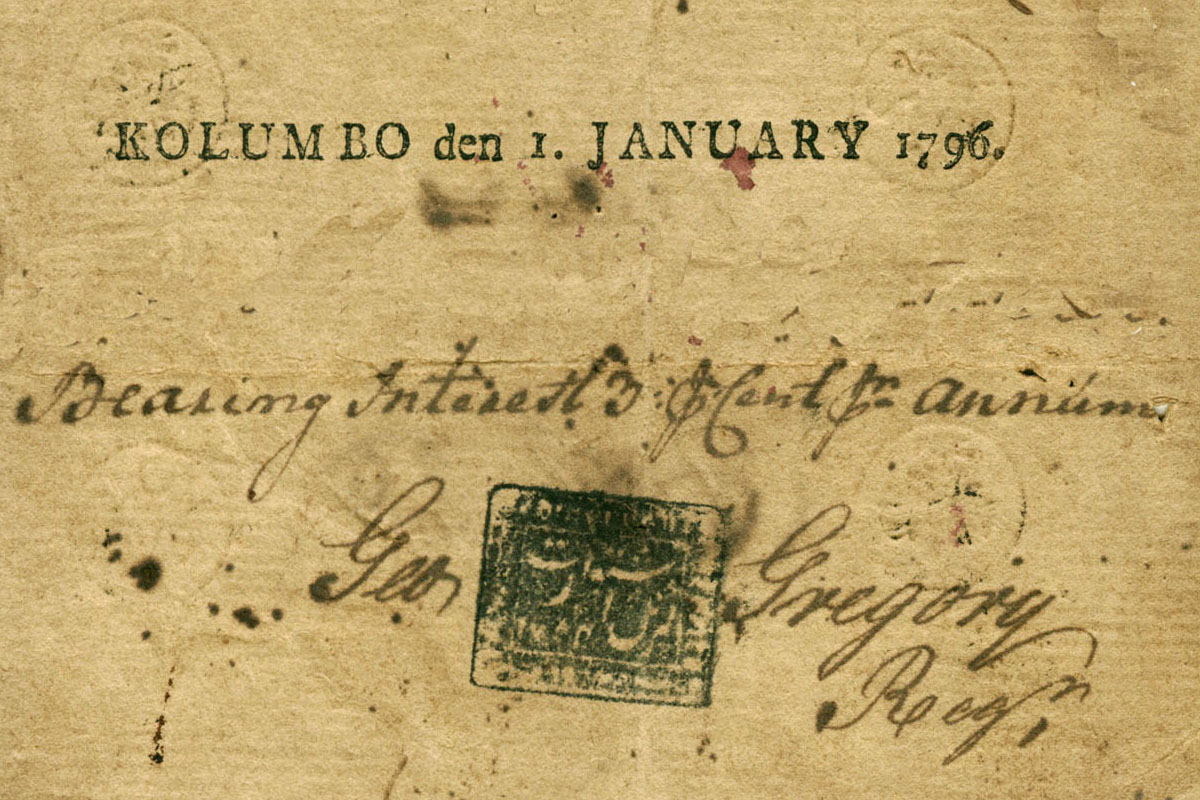 KOLUMBO den 1. JANUARY 1796.
Bearing Interest 3 ⅌ Cent ⅌r annum
Geo Gregory
Regr